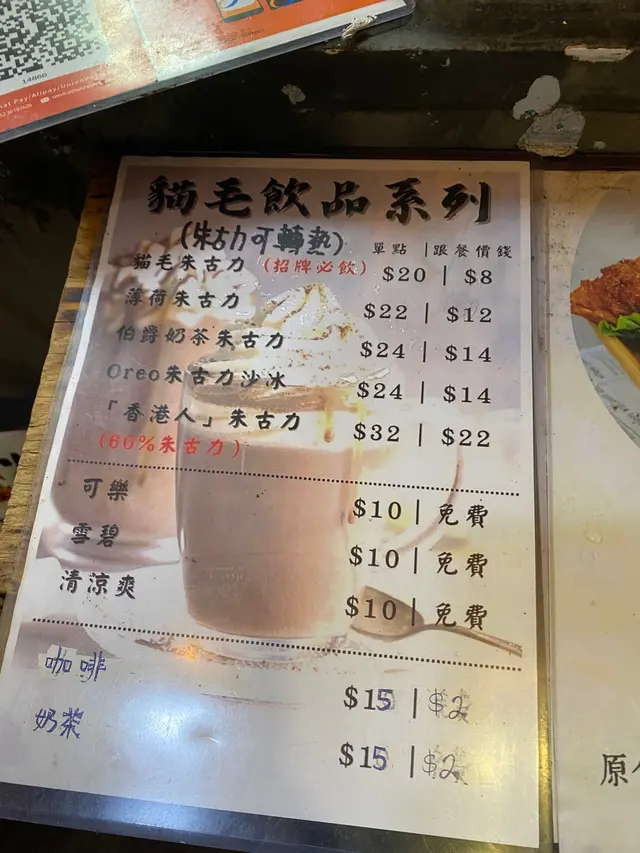 14866
hat Pay/Alipay/Union
貓毛飲品系列
(朱古力可轉熱)
單點 |跟餐價錢
貓毛朱古力 (招牌必飲) $20 | $8
薄荷朱古力 $22 | $12
伯爵奶茶朱古力 $24 | $14
Oreo朱古力沙冰 $24 | $14
「香港人」朱古力 $32 | $22
(60%朱古力)
可樂 $10 | 免費
雪碧 $10 | 免費
清涼爽 $10 | 免費
咖啡 $15 | $2
奶茶 $15 | $2
原